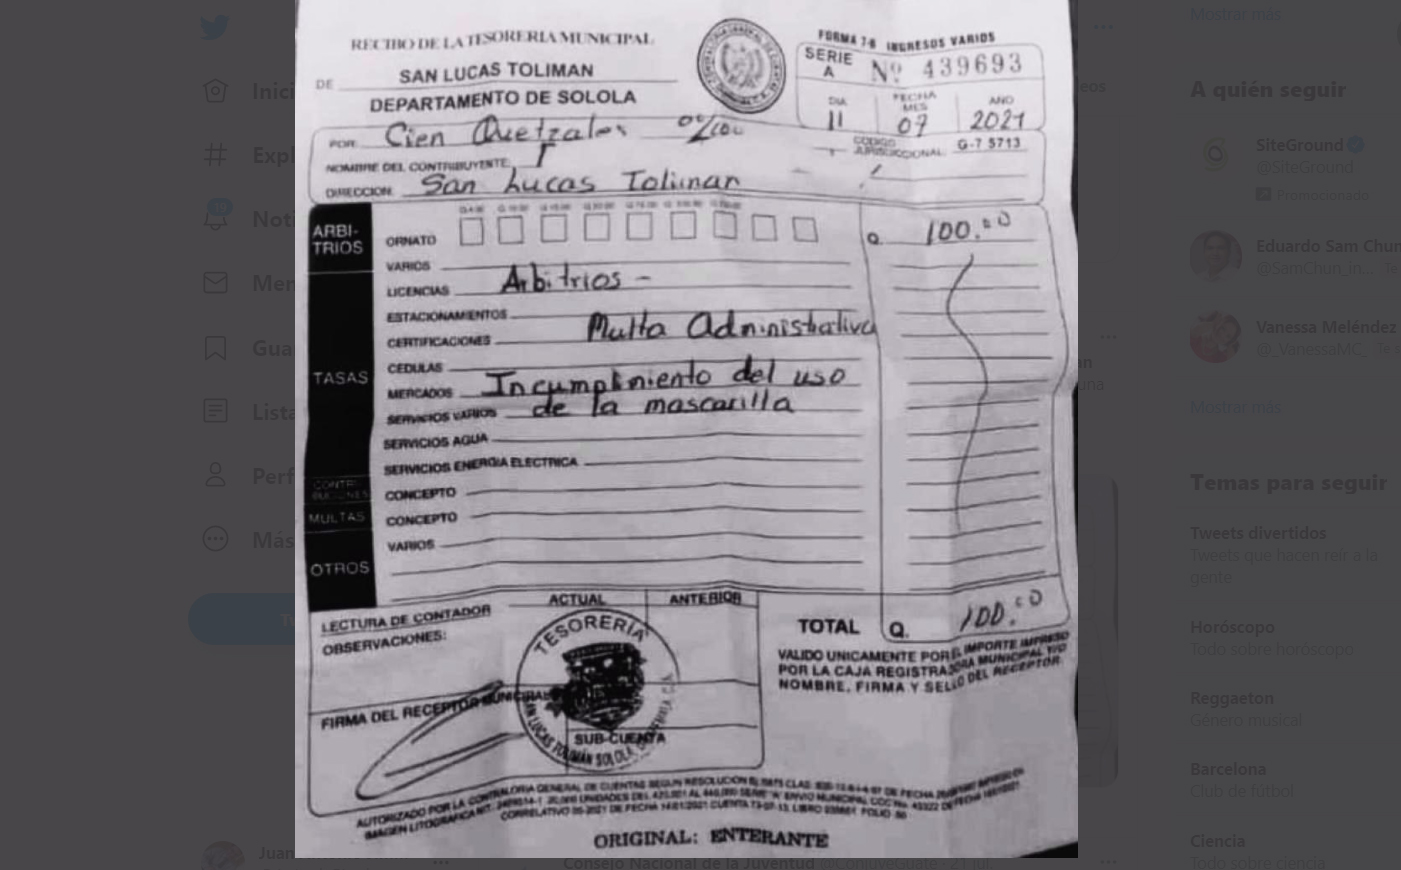 RECIBO DE LA TESORERIA MUNICIPAL
DE SAN LUCAS TOLIMAN
DEPARTAMENTO DE SOLOLA
FORMA 7-B INGRESOS VARIOS
SERIE A Nº 439693
DIA FECHA MES AÑO
11 07 2021
POR: Cien Quetzales 00/100
CODIGO JURISDICCIONAL: G-7 5713
NOMBRE DEL CONTRIBUYENTE:
DIRECCION: San Lucas Toliman
ARBI-
TRIOS
ORNATO
Q. 100.00
VARIOS
LICENCIAS Arbitrios -
ESTACIONAMIENTOS
CERTIFICACIONES Multa Administrativa
TASAS
CEDULAS
MERCADOS Incumplimiento del uso
SERVICIOS VARIOS de la mascarilla
SERVICIOS AGUA
SERVICIOS ENERGIA ELECTRICA
CONTRI-
BUCIONES
CONCEPTO
MULTAS
CONCEPTO
VARIOS
OTROS
LECTURA DE CONTADOR
ACTUAL ANTERIOR
OBSERVACIONES:
TOTAL Q. 100.00
VALIDO UNICAMENTE POR EL IMPORTE IMPRESO
POR LA CAJA REGISTRADORA MUNICIPAL Y/O
NOMBRE, FIRMA Y SELLO DEL RECEPTOR
FIRMA DEL RECEPTOR MUNICIPAL
TESORERIA
SAN LUCAS TOLIMÁN SOLOLA, GUATEMALA, C.A.
SUB-CUENTA
AUTORIZADO POR LA CONTRALORIA GENERAL DE CUENTAS SEGUN RESOLUCION
ORIGINAL: ENTERANTE
Inici
Expl
Noti
Men
Gua
Lista
Perf
Más
Juan
Consejo Nacional de la Juventud @ConjuveGuate · 21 jul.
Mostrar más
A quién seguir
SiteGround
@SiteGround
Promocionado
Eduardo Sam Chun
@SamChun_In... Te
Vanessa Meléndez
@_VanessaMC_ Te
Mostrar más
Temas para seguir
Tweets divertidos
Tweets que hacen reír a la
gente
Horóscopo
Todo sobre horóscopo
Reggaeton
Género musical
Barcelona
Club de fútbol
Ciencia
Todo sobre ciencia